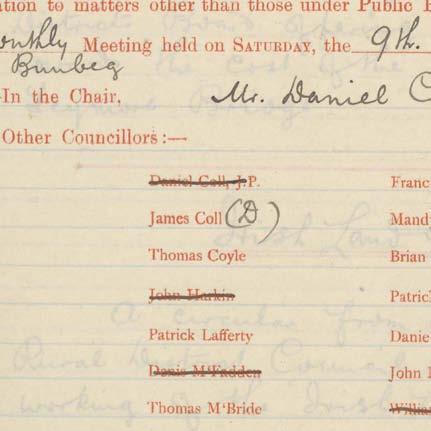 ation to matters other than those under Public H
onthly Meeting held on SATURDAY, the 9th.
Bunbeg
In the Chair, Mr. Daniel C
Other Councillors:—
Daniel Coll, J.P. Franc
James Coll (D) Mand
Thomas Coyle Brian
John Harkin Patric
Patrick Lafferty Danie
Denis M'Fadden John M
Thomas M'Bride Willia